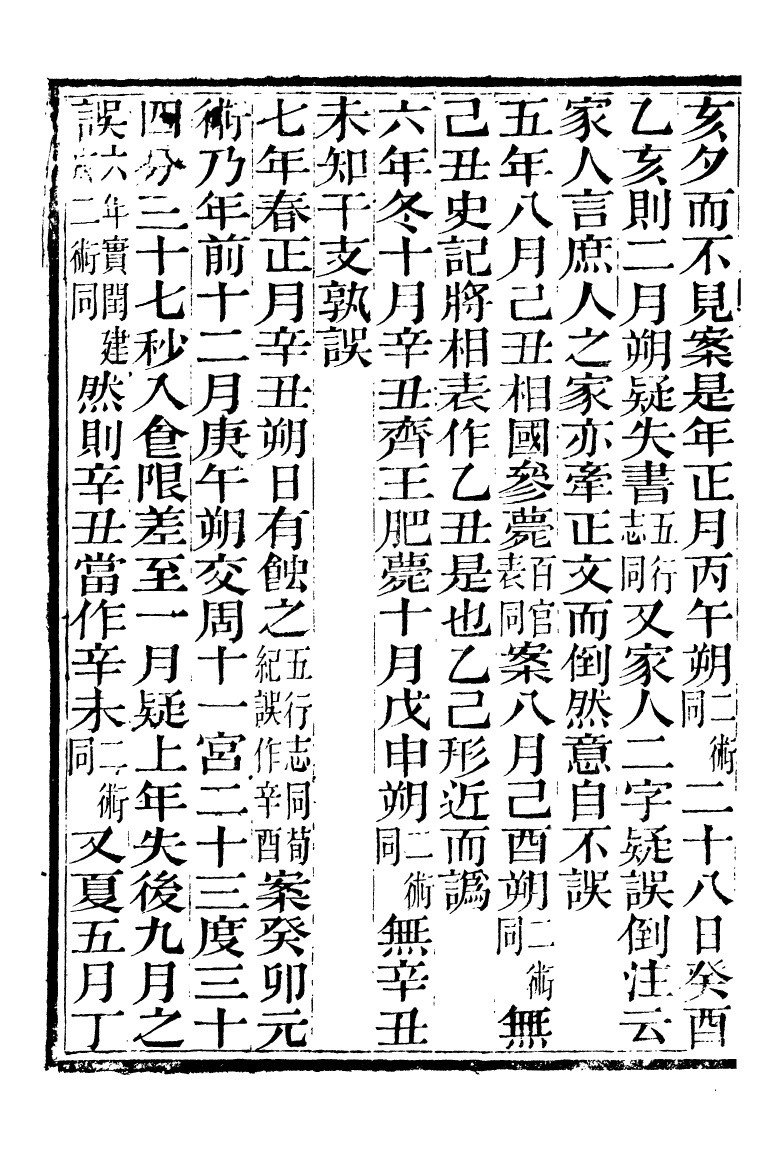 亥夕而不見案是年正月丙午朔二術同二十八日癸酉
乙亥則二月朔疑失書五行志同又家人二字疑誤倒注云
家人言庶人之家亦牽正文而倒然意自不誤
五年八月己丑相國參薨百官表同案八月己酉朔二術同無
己丑史記將相表作乙丑是也乙己形近而譌
六年冬十月辛丑齊王肥薨十月戊申朔二術同無辛丑
未知干支孰誤
七年春正月辛丑朔日有蝕之五行志同荀紀誤作辛酉案癸卯元
術乃年前十二月庚午朔交周十一宮二十三度三十
四分三十七秒入食限差至一月疑上年失後九月之
誤六年實閏建二術同然則辛丑當作辛未二術同又夏五月丁